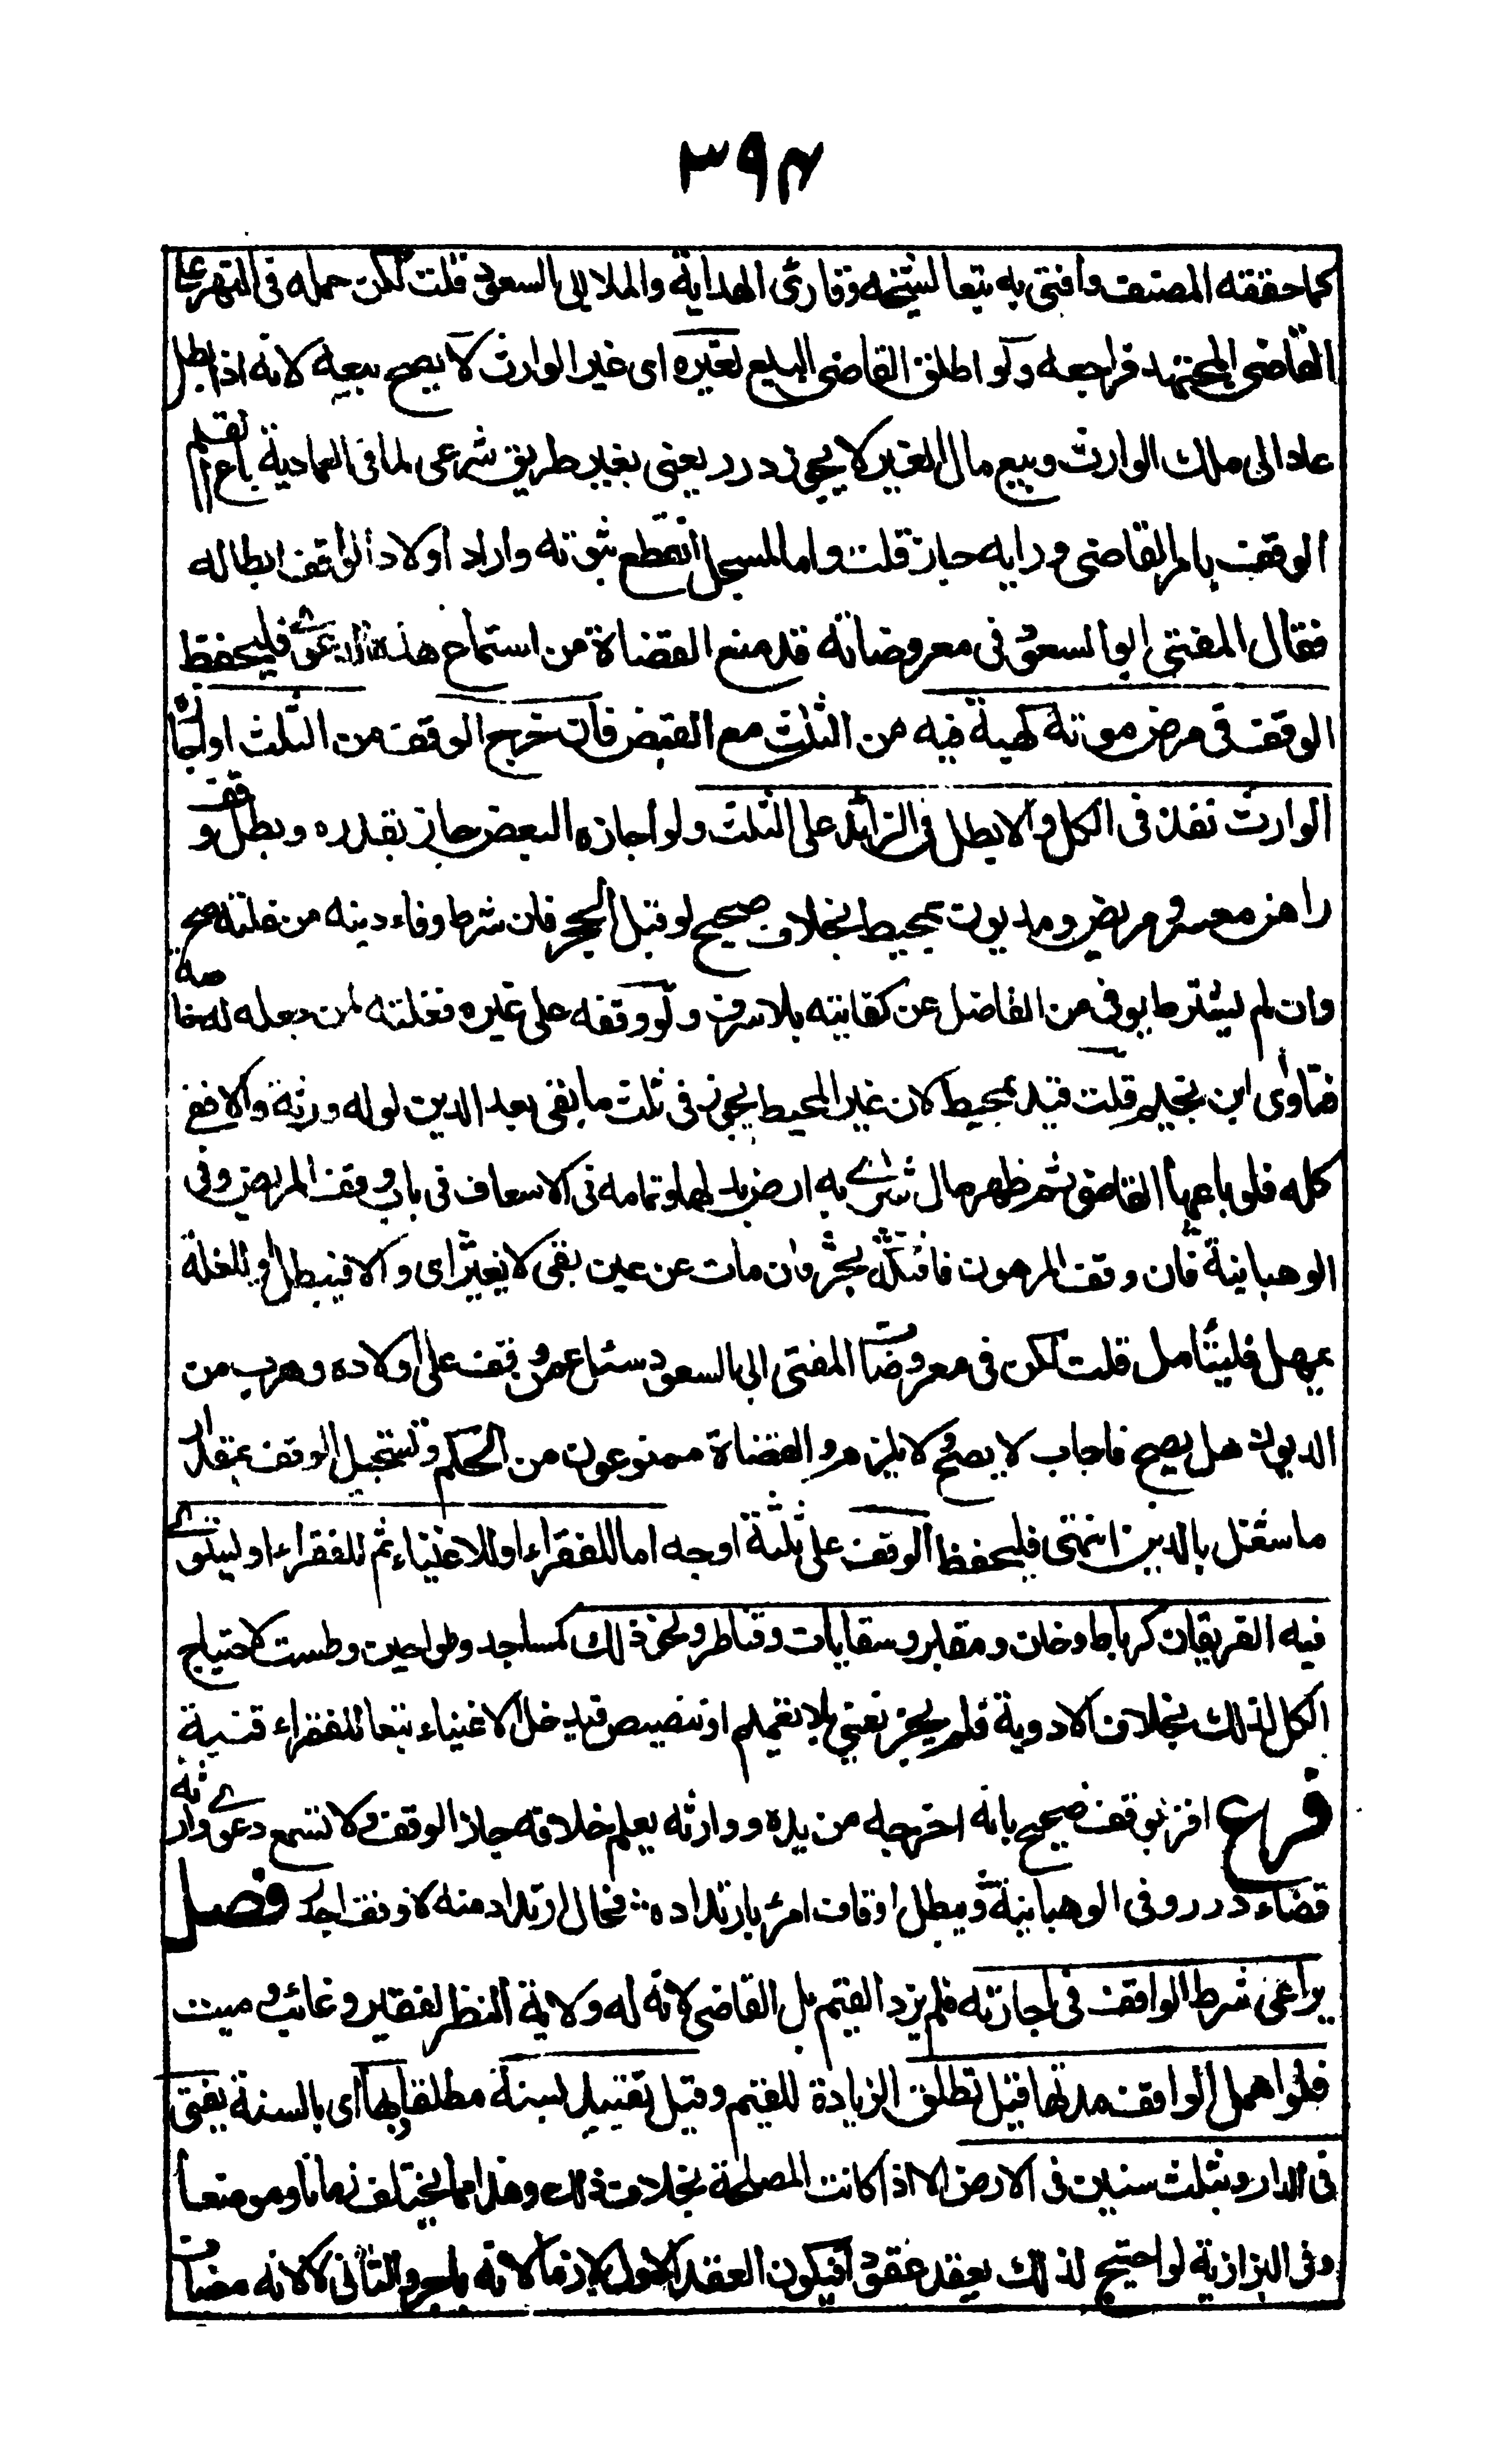 ٣٩٤
كما حققه المصنف وافتى به تبعا لشيخه وقارئ الهداية والملا ابي السعود قلت لكن حمله في النهر على
القاضي المجتهد فراجعه ولو اطلق القاضي البيع لغيره اى غير الوارث لا يصح بيعه لانه اذا بطل
عاد الى ملك الوارث وبيع مال الغير لا يجوز درر يعنى بغير طريق شرعى لما في العمادية باع القيم
الوقف بامر القاضي ورايه جاز قلت واما المسجل انقطع ثبوته واراد اولاد الواقف ابطاله
فقال المفتي ابوالسعود في معروضاته قد منع القضاة من استماع هذه الدعوى فليحفظ
الوقف في مرض موته كهبة فيه من الثلث مع القبض فان خرج الوقف من الثلث او اجازه
الوارث نفذ في الكل والا بطل في الزائد على الثلث ولو اجازه البعض جاز بقدره وبطل وقف
راهن معسر ومريض مديون بمحيط بخلاف صحيح لو قبل الحجر فان شرط وفاء دينه من غلته صح
وان لم يشترط يوفى من الفاضل عن كفايته بلا سرف ولو وقفه على غيره فغلته لمن جعله له خاصة
فتاوى ابن نجيم قلت قيد بمحيط لان غير المحيط يجوز في ثلث ما بقى بعد الدين لو له ورثة والا ففي
كله فلو باعها القاضي ثم ظهر مال شرى به ارض بدلها وتمامه في الاسعاف في باب وقف المريض وفي
الوهبانية فان وقف المرهون فافتكه يجز وان مات عن عين بقى لا يغير اى والا فيبطل او للغلة
يمهل فليتأمل قلت لكن في معروضات المفتى ابي السعود سئل عمن وقف على اولاده وهرب من
الديون هل يصح فاجاب لا يصح ولا يلزم والقضاة ممنوعون من الحكم وتسجيل الوقف بمقدار
ما شغل بالدين انتهى فليحفظ الوقف على ثلثة اوجه اما للفقراء او للاغنياء ثم للفقراء او ليستوى
فيه الفريقان كرباط وخان ومقابر وسقايات وقناطر ونحو ذلك كمساجد وطواحين وطست لاحتياج
الكل لذلك بخلاف الادوية فلم يجز لغني بلا تعميم او تنصيص فيدخل الاغنياء تبعا للفقراء قنية
فرع اقر بوقف صحيح بانه اخرجه من يده ووارثه يعلم خلافه جاز الوقف ولا تسمع دعوى وارثه
قضاء درر وفى الوهبانية ويبطل اوقاف امرئ بارتداده * فحال ارتداد منه لا وقف اجدر فصل
يراعى شرط الواقف في اجارته فلم يزد القيم بل القاضي لانه له ولاية النظر لفقير وغائب وميت
فلو اهمل الواقف مدتها قيل تطلق الزيادة للقيم وقيل تقييد بسنة مطلقا وبها اى بالسنة يفتى
في الدار وبثلث سنين في الارض الا اذا كانت المصلحة بخلاف ذلك وهذا مما يختلف زمانا وموضعا
وفي البزازية لو احتيج لذلك يعقد عقودا فيكون العقد الاول لازما لانه ناجز والثاني لا لانه مضاف